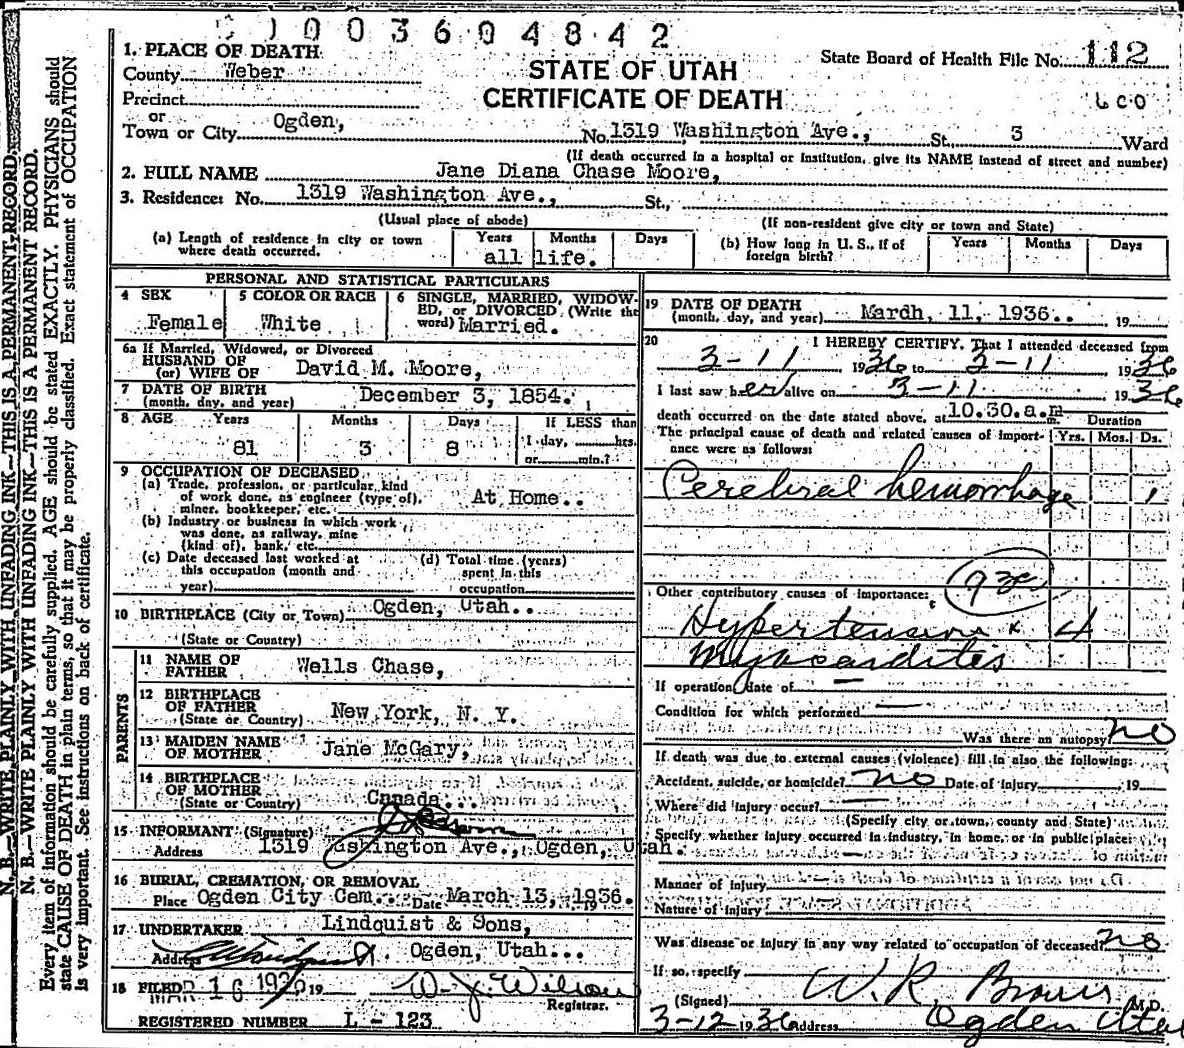 003604842
1. PLACE OF DEATH
County Weber
STATE OF UTAH
CERTIFICATE OF DEATH
State Board of Health File No. 112
Precinct
or
Town or City Ogden, No. 1319 Washington Ave., St, 3 Ward
(If death occurred in a hospital or institution, give its NAME instead of street and number)
2. FULL NAME Jane Diana Chase Moore,
3. Residence: No. 1319 Washington Ave., St,
(Usual place of abode) (If non-resident give city or town and State)
(a) Length of residence in city or town where death occurred. Years Months Days
all life.
(b) How long in U. S., if of foreign birth? Years Months Days
PERSONAL AND STATISTICAL PARTICULARS
4 SEX Female
5 COLOR OR RACE White
6 SINGLE, MARRIED, WIDOWED, or DIVORCED (Write the word) Married.
6a If Married, Widowed, or Divorced
HUSBAND OF
(or) WIFE OF David M. Moore,
7 DATE OF BIRTH
(month, day, and year) December 3, 1854.
8 AGE Years Months Days If LESS than
81 3 8 1 day, hrs.
or min.?
9 OCCUPATION OF DECEASED
(a) Trade, profession, or particular kind
of work done, as engineer (type of),
miner, bookkeeper, etc. At Home..
(b) Industry or business in which work
was done, as railway, mine
(kind of), bank, etc.
(c) Date deceased last worked at
this occupation (month and
year)
(d) Total time (years)
spent in this
occupation
10 BIRTHPLACE (City or Town) Ogden, Utah..
(State or Country)
PARENTS
11 NAME OF
FATHER Wells Chase,
12 BIRTHPLACE
OF FATHER
(State or Country) New York, N. Y.
13 MAIDEN NAME
OF MOTHER Jane McGary,
14 BIRTHPLACE
OF MOTHER
(State or Country) Canada...
15 INFORMANT (Signature)
Address 1319 ashington Ave., Ogden, Utah.
16 BURIAL, CREMATION, OR REMOVAL
Place Ogden City Cem. Date March 13, 1936.
17 UNDERTAKER Lindquist & Sons,
Address Ogden, Utah...
18 FILED MAR 16 19
W. J. Wilson
Registrar.
REGISTERED NUMBER L - 123
19 DATE OF DEATH
(month, day, and year) Mardh, 11, 1936.. 19
20 I HEREBY CERTIFY, That I attended deceased from
3-11 1936 to 3-11 1936
I last saw her alive on 3-11 1936
death occurred on the date stated above, at 10.30.a.m. Duration
The principal cause of death and related causes of importance were as follows: Yrs. Mos. Ds.
Cerebral hemorrhage 1
Other contributory causes of importance:
Hypertension 4
Myocardites
If operation, date of
Condition for which performed
Was there an autopsy? no
If death was due to external causes (violence) fill in also the following:
Accident, suicide, or homicide? no Date of injury 19
Where did injury occur?
(Specify city or town, county and State)
Specify whether injury occurred in industry, in home, or in public place:
Manner of injury
Nature of injury
Was disease or injury in any way related to occupation of deceased? no
If so, specify
(Signed) W. R. Brown M.D.
3-12 1936 Address Ogden Utah
N. B.—WRITE PLAINLY WITH UNFADING INK—THIS IS A PERMANENT RECORD.
N. B.—WRITE PLAINLY WITH UNFADING INK—THIS IS A PERMANENT RECORD.
Every item of information should be carefully supplied. AGE should be stated EXACTLY. PHYSICIANS should
state CAUSE OF DEATH in plain terms, so that it may be properly classified. Exact statement of OCCUPATION
is very important. See instructions on back of certificate.